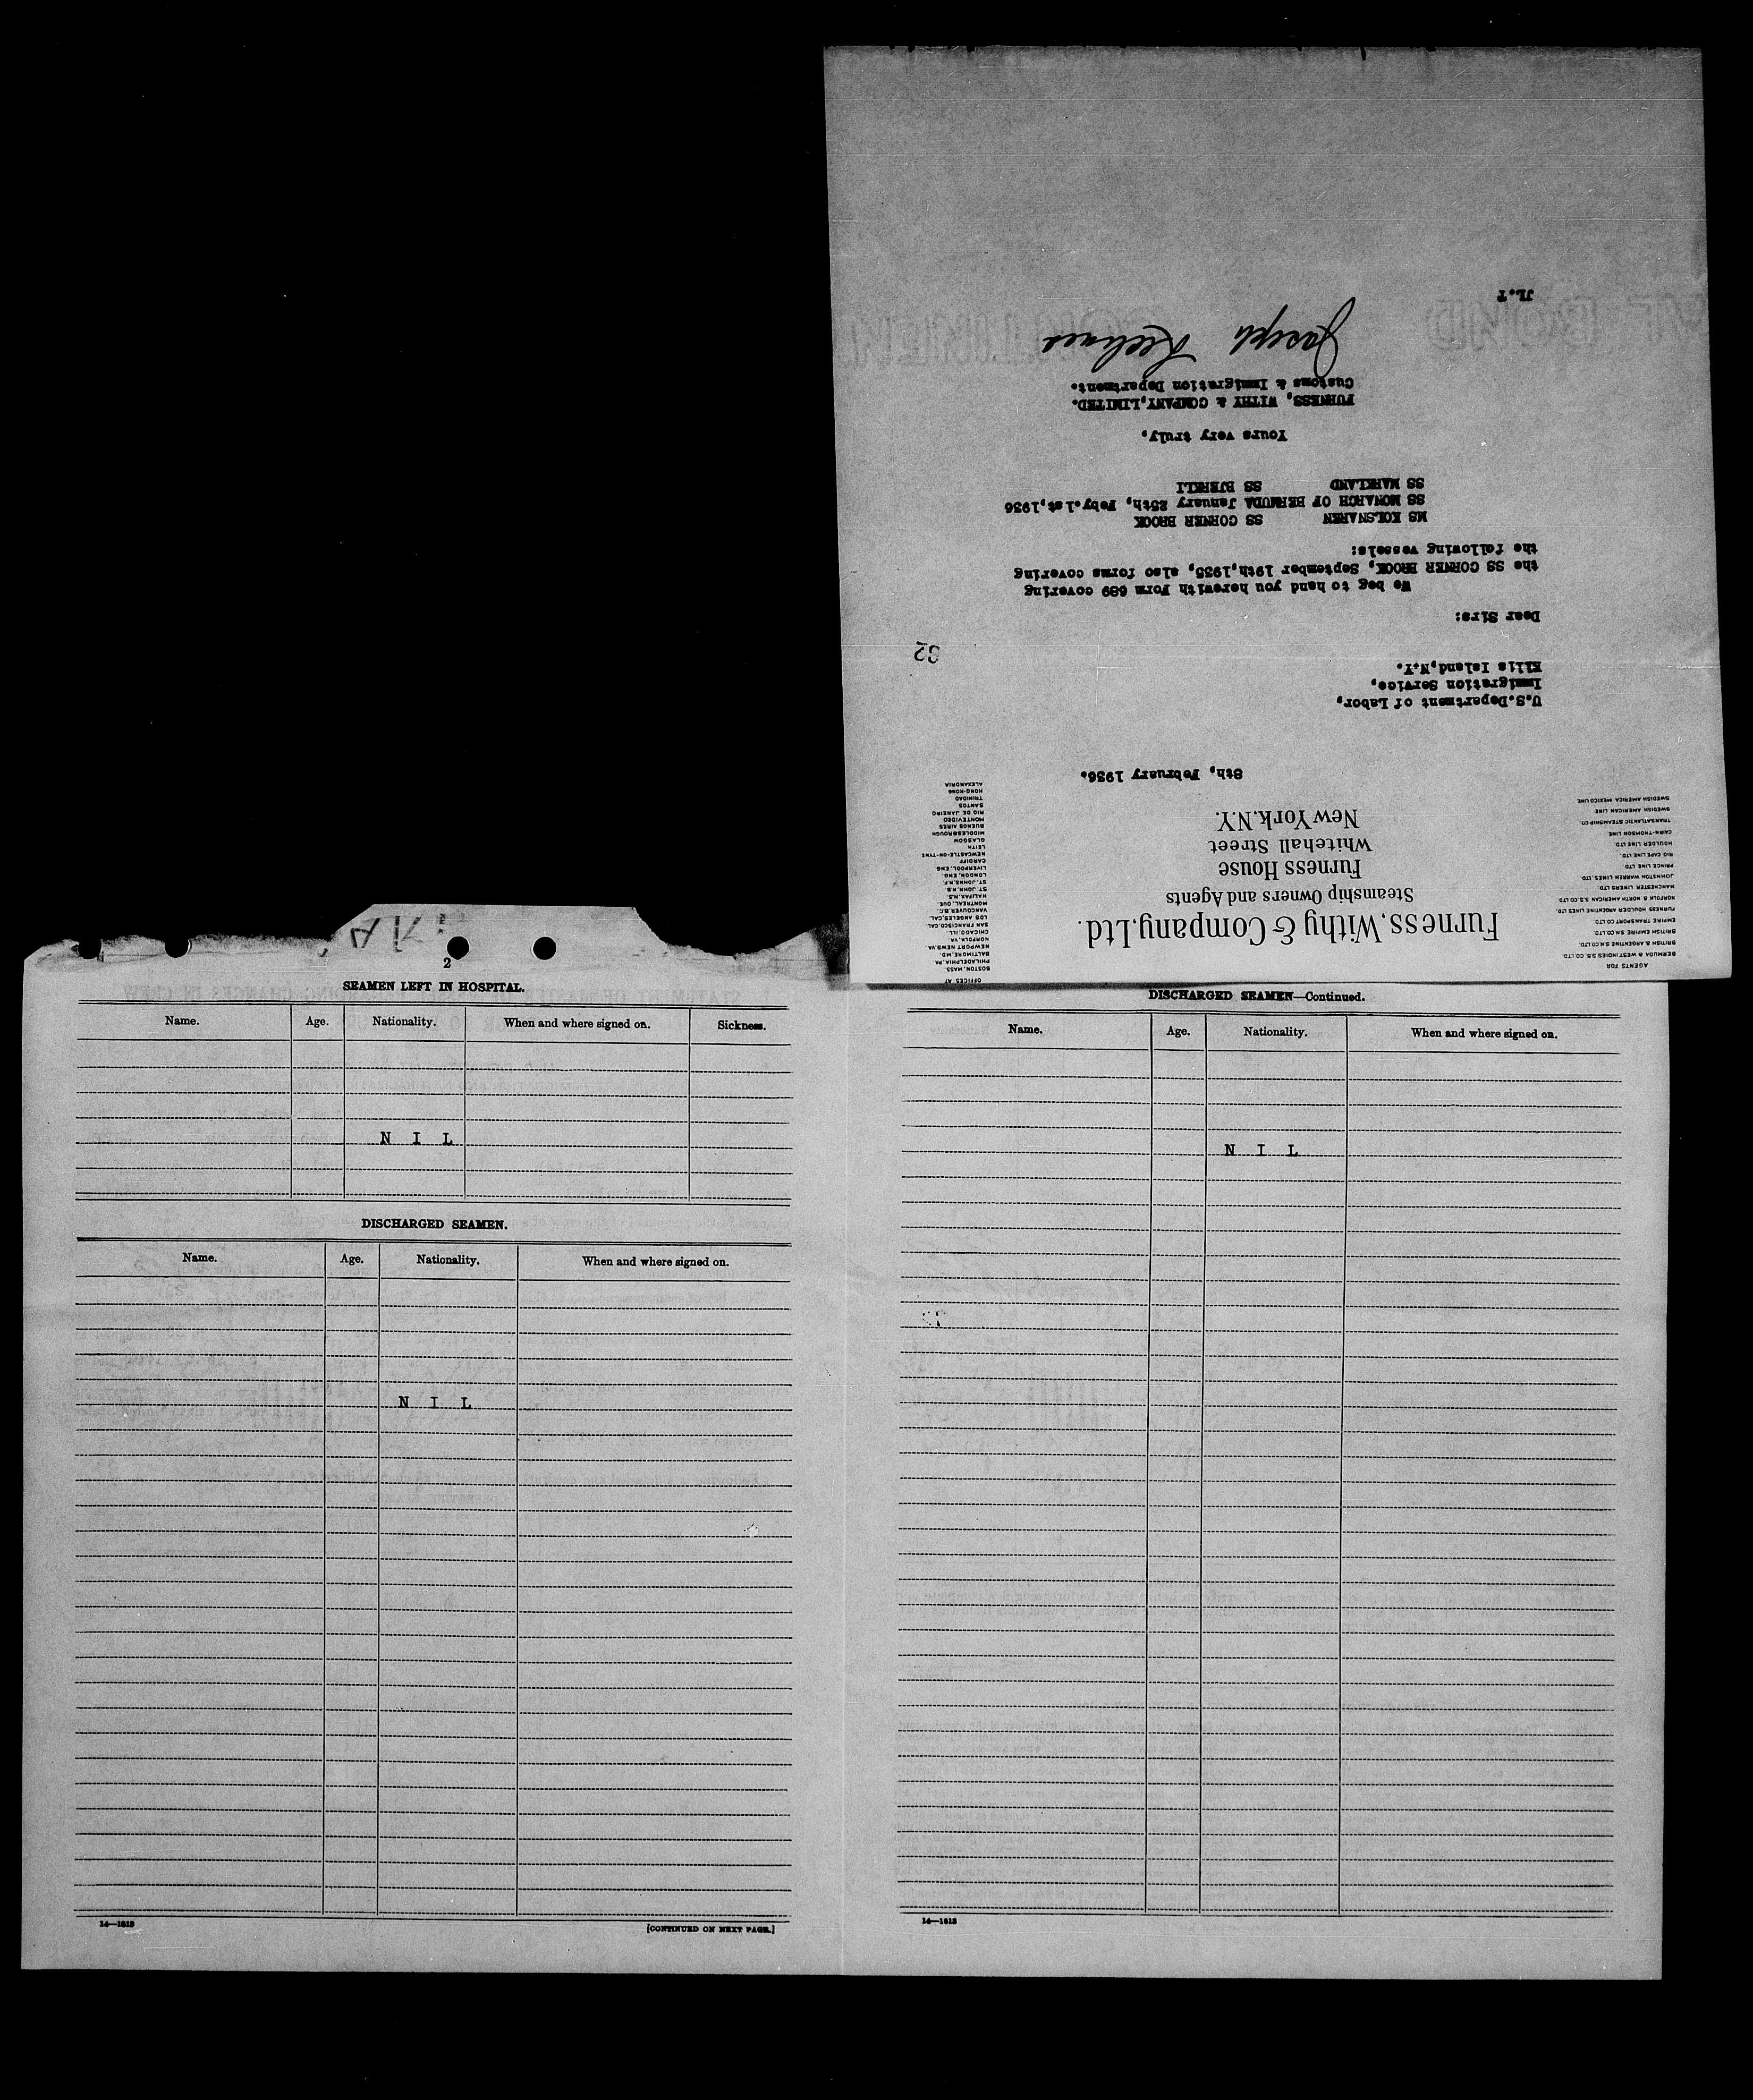 Furness, Withy & Company, Ltd.
Steamship Owners and Agents
Furness House
Whitehall Street
New York, N.Y.
AGENTS FOR
BERMUDA & WEST INDIES S.S. CO. LTD.
BRITISH & ARGENTINE S.N. CO. LTD.
BRITISH EMPIRE S.N. CO. LTD.
EMPIRE TRANSPORT CO. LTD
FURNESS HOULDER ARGENTINE LINES LTD
NORFOLK & NORTH AMERICAN S.S. CO. LTD
MANCHESTER LINERS LTD.
JOHNSTON WARREN LINES, LTD.
PRINCE LINE LTD.
RIO CAPE LINE LTD.
HOULDER LINE LTD.
CAIRN-THOMSON LINE
TRANSATLANTIC STEAMSHIP CO.
SWEDISH AMERICAN LINE
SWEDISH AMERICA MEXICO LINE
OFFICES AT
BOSTON, MASS.
PHILADELPHIA, PA.
BALTIMORE, MD.
NEWPORT NEWS, VA.
NORFOLK, VA.
CHICAGO, ILL.
SAN FRANCISCO, CAL.
LOS ANGELES, CAL.
VANCOUVER, B.C.
MONTREAL, QUE.
HALIFAX, N.S.
ST. JOHN, N.B.
ST. JOHNS, N.F.
LONDON, ENG.
LIVERPOOL, ENG.
CARDIFF
NEWCASTLE-ON-TYNE
LEITH
GLASGOW
MIDDLESBROUGH
BUENOS AIRES
MONTEVIDEO
RIO DE JANEIRO
SANTOS
TRINIDAD
HONG-KONG
ALEXANDRIA
8th, February 1936.
U.S.Department of Labor,
Immigration Service,
Ellis Island,N.Y.
Dear Sirs:
We beg to hand you herewith Form 689 covering
the SS CORNER BROOK, September 19th,1935, also forms covering
the following vessels:
MS KOLSNAREN SS CORNER BROOK
SS MONARCH OF BERMUDA January 25th, Feby.1st,1936
SS MARKLAND SS BJERKLI
Yours very truly,
FURNESS, WITHY & COMPANY,LIMITED.
Customs & Immigration Department.
Joseph
JL.T
2
SEAMEN LEFT IN HOSPITAL.
Name. Age. Nationality. When and where signed on. Sickness.
N I L
DISCHARGED SEAMEN.
Name. Age. Nationality. When and where signed on.
N I L
14—1613
[CONTINUED ON NEXT PAGE.]
DISCHARGED SEAMEN—Continued.
Name. Age. Nationality. When and where signed on.
N I L
14—1613